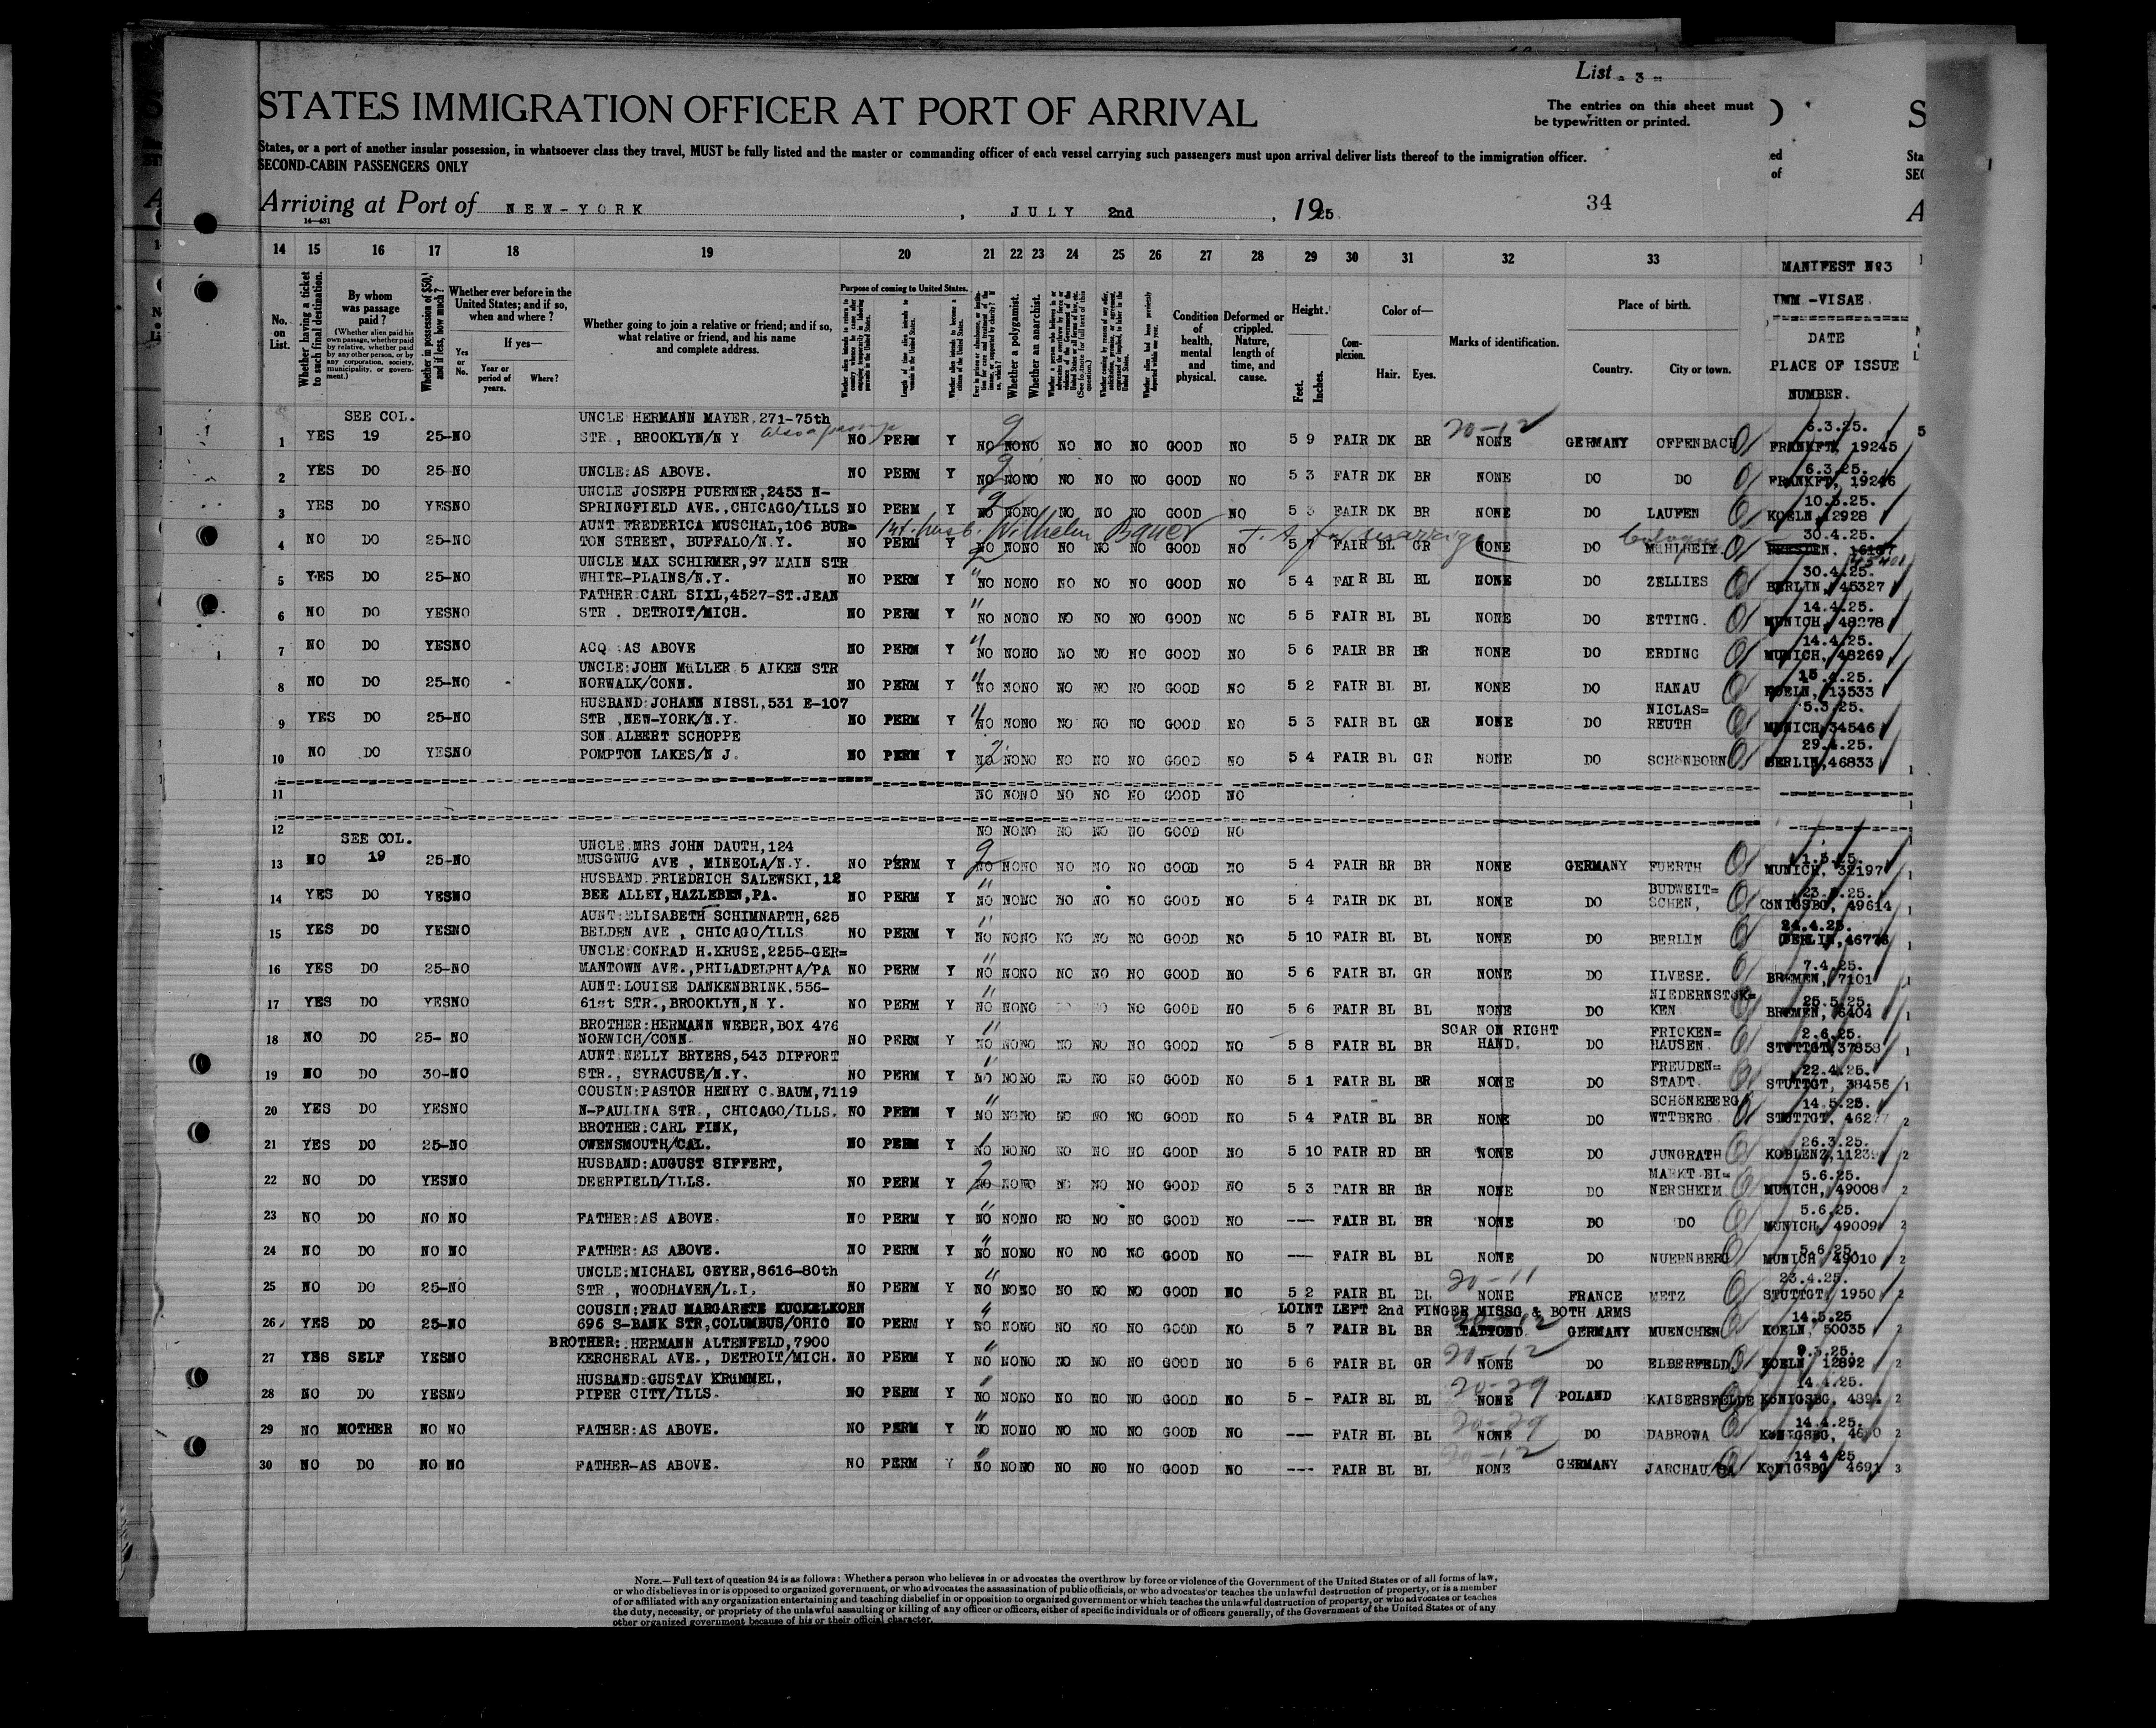 List - 3 -
STATES IMMIGRATION OFFICER AT PORT OF ARRIVAL
The entries on this sheet must
be typewritten or printed.
States, or a port of another insular possession, in whatsoever class they travel, MUST be fully listed and the master or commanding officer of each vessel carrying such passengers must upon arrival deliver lists thereof to the immigration officer.
SECOND-CABIN PASSENGERS ONLY
Arriving at Port of NEW-YORK , JULY 2nd , 1925
34
14—431
14 15 16 17 18 19 20 21 22 23 24 25 26 27 28 29 30 31 32 33
MANIFEST No3
IMM.-VISAE.
DATE
PLACE OF ISSUE
NUMBER.
No. on List.
Whether having a ticket to such final destination.
By whom was passage paid?
(Whether alien paid his own passage, whether paid by relative, whether paid by any other person, or by any corporation, society, municipality, or government.)
Whether in possession of $50, and if less, how much?
Whether ever before in the United States; and if so, when and where?
Yes or No.
If yes—
Year or period of years.
Where?
Whether going to join a relative or friend; and if so, what relative or friend, and his name and complete address.
Purpose of coming to United States.
Length of time alien intends to remain in the United States.
Whether a polygamist.
Whether an anarchist.
Condition of health, mental and physical.
Deformed or crippled. Nature, length of time, and cause.
Height.
Feet. Inches.
Complexion.
Color of—
Hair. Eyes.
Marks of identification.
Place of birth.
Country. City or town.
SEE COL. UNCLE HERMANN MAYER,271-75th 6.3.25.
1 YES 19 25-NO STR., BROOKLYN/N Y NO PERM Y NO NO NO NO NO NO GOOD NO 5 9 FAIR DK BR 20-12 NONE GERMANY OFFENBACH FRANKFT, 19245
6.3.25.
2 YES DO 25-NO UNCLE:AS ABOVE. NO PERM Y NO NO NO NO NO NO GOOD NO 5 3 FAIR DK BR NONE DO DO FRANKFT, 19246
UNCLE JOSEPH PUERNER,2453 N-
3 YES DO YES NO SPRINGFIELD AVE.,CHICAGO/ILLS NO PERM Y NO NO NO NO NO NO GOOD NO FAIR DK BR NONE DO LAUFEN KOELN,12928
AUNT FREDERICA MUSCHAL,106 BUR= Wilhelm Bauer marriage Cologne 30.4.25.
4 NO DO 25-NO TON STREET, BUFFALO/N.Y. NO PERM Y NO NO NO NO NO NO GOOD NO FAIR BL GR NONE DO MüHLHEIM DRESDEN.
UNCLE MAX SCHIRMER,97 MAIN STR 30.4.25.
5 YES DO 25-NO WHITE-PLAINS/N.Y. NO PERM Y NO NO NO NO NO NO GOOD NO 5 4 FAIR BL BL NONE DO ZELLIES BERLIN, 45327
FATHER CARL SIXL,4527-ST.JEAN 14.4.25.
6 NO DO YES NO STR . DETROIT/MICH. NO PERM Y NO NO NO NO NO NO GOOD NO 5 5 FAIR BL BL NONE DO ETTING. MUNICH, 48278
14.4.25.
7 NO DO YES NO ACQ :AS ABOVE NO PERM Y NO NO NO NO NO NO GOOD NO 5 6 FAIR BR BR NONE DO ERDING MUNICH, 48269
UNCLE:JOHN MüLLER 5 AIKEN STR 15.4.25.
8 NO DO 25-NO NORWALK/CONN. NO PERM Y NO NO NO NO NO NO GOOD NO 5 2 FAIR BL BL NONE DO HANAU KOELN, 13533
HUSBAND:JOHANN NISSL,531 E-107 NICLAS= 5.3.25.
9 YES DO 25-NO STR ,NEW-YORK/N.Y. NO PERM Y NO NO NO NO NO NO GOOD NO 5 3 FAIR BL GR NONE DO REUTH MUNICH,34546
SON ALBERT SCHOPPE 29.4.25.
10 NO DO YES NO POMPTON LAKES/N J. NO PERM Y NO NO NO NO NO NO GOOD NO 5 4 FAIR BL GR NONE DO SCHöNBORN BERLIN,46833
11 NO NO NO NO NO NO GOOD NO
12 NO NO NO NO NO NO GOOD NO
SEE COL. UNCLE.MRS JOHN DAUTH,124
13 NO 19 25-NO MUSGNUG AVE , MINEOLA/N.Y. NO PERM Y NO NO NO NO NO NO GOOD NO 5 4 FAIR BR BR NONE GERMANY FUERTH MUNICH, 32197
HUSBAND FRIEDRICH SALEWSKI,12 BUDWEIT=
14 YES DO YES NO BEE ALLEY,HAZLEBEN,PA. NO PERM Y NO NO NO NO NO NO GOOD NO 5 4 FAIR DK BL NONE DO SCHEN, KöNIGSBG, 49614
AUNT:ELISABETH SCHIMNARTH,625 24.4.25.
15 YES DO YES NO BELDEN AVE , CHICAGO/ILLS NO PERM Y NO NO NO NO NO NO GOOD NO 5 10 FAIR BL BL NONE DO BERLIN BERLIN,46776
UNCLE:CONRAD H.KRUSE,2255-GER= 7.4.25.
16 YES DO 25-NO MANTOWN AVE.,PHILADELPHIA/PA NO PERM Y NO NO NO NO NO NO GOOD NO 5 6 FAIR BL GR NONE DO ILVESE. BREMEN, 7101
AUNT:LOUISE DANKENBRINK,556- NIEDERNSTÖK= 25.5.25.
17 YES DO YES NO 61st STR.,BROOKLYN,N Y. NO PERM Y NO NO NO NO NO NO GOOD NO 5 6 FAIR BL BL NONE DO KEN BREMEN, 6404
BROTHER:HERMANN WEBER,BOX 476 SCAR ON RIGHT FRICKEN= 2.6.25.
18 NO DO 25- NO NORWICH/CONN. NO PERM Y NO NO NO NO NO NO GOOD NO 5 8 FAIR BL BR HAND. DO HAUSEN. STUTTGT,37858
AUNT NELLY BRYERS,543 DIFFORT FREUDEN= 22.4.25.
19 NO DO 30-NO STR., SYRACUSE/N.Y. NO PERM Y NO NO NO NO NO NO GOOD NO 5 1 FAIR BL BR NONE DO STADT. STUTTGT, 38456
COUSIN:PASTOR HENRY C.BAUM,7119 SCHöNEBERG/ 14.5.25.
20 YES DO YES NO N-PAULINA STR., CHICAGO/ILLS. NO PERM Y NO NO NO NO NO NO GOOD NO 5 4 FAIR BL BR NONE DO WTTBERG. STUTTGT,
BROTHER:CARL FINK, 26.3.25.
21 YES DO 25-NO OWENSMOUTH/CAL. NO PERM Y NO NO NO NO NO NO GOOD NO 5 10 FAIR RD BR NONE DO JUNGRATH KOBLENZ,
HUSBAND:AUGUST SIFFERT, MARKT EI= 5.6.25.
22 NO DO YES NO DEERFIELD/ILLS. NO PERM Y NO NO NO NO NO NO GOOD NO 5 3 FAIR BR BR NONE DO NERSHEIM MUNICH, 49008
5.6.25.
23 NO DO NO NO FATHER:AS ABOVE. NO PERM Y NO NO NO NO NO NO GOOD NO --- FAIR BL BR NONE DO DO MUNICH, 49009
5.6.25.
24 NO DO NO NO FATHER:AS ABOVE. NO PERM Y NO NO NO NO NO NO GOOD NO --- FAIR BL BL NONE DO NUERNBERG MUNICH 49010
UNCLE:MICHAEL GEYER,8616-80th 20-11 23.4.25.
25 NO DO 25-NO STR , WOODHAVEN/L.I. NO PERM Y NO NO NO NO NO NO GOOD NO 5 2 FAIR BL BL NONE FRANCE METZ STUTTGT, 1950
COUSIN:FRAU MARGARETE KUCKELKORN LOINT LEFT 2nd FINGER MISSG,& BOTH ARMS 14.5.25
26 YES DO 25-NO 696 S-BANK STR,COLUMBUS/OHIO NO PERM Y NO NO NO NO NO NO GOOD NO 5 7 FAIR BL BR TATTOED. GERMANY MUENCHEN KOELN, 50035
BROTHER:.HERMANN ALTENFELD,7900 20-12 9.3.25.
27 YES SELF YES NO KERCHERAL AVE., DETROIT/MICH. NO PERM Y NO NO NO NO NO NO GOOD NO 5 6 FAIR BL GR NONE DO ELBERFELD, KOELN, 12892
HUSBAND:GUSTAV KRüMMEL, 20-29 14.4.25.
28 NO DO YES NO PIPER CITY/ILLS. NO PERM Y NO NO NO NO NO NO GOOD NO 5 - FAIR BL BL NONE POLAND KAISERSFELDE KöNIGSBG,
20-29 14.4.25.
29 NO MOTHER NO NO FATHER:AS ABOVE. NO PERM Y NO NO NO NO NO NO GOOD NO --- FAIR BL BL NONE DO DABROWA KöNIGSBG,
20-12 14.4 25
30 NO DO NO NO FATHER-AS ABOVE. NO PERM Y NO NO NO NO NO NO GOOD NO --- FAIR BL BL NONE GERMANY JARCHAU KöNIGSBG 4691
NOTE.—Full text of question 24 is as follows: Whether a person who believes in or advocates the overthrow by force or violence of the Government of the United States or of all forms of law,
or who disbelieves in or is opposed to organized government, or who advocates the assassination of public officials, or who advocates or teaches the unlawful destruction of property, or is a member
of or affiliated with any organization entertaining and teaching disbelief in or opposition to organized government or which teaches the unlawful destruction of property, or who advocates or teaches
the duty, necessity, or propriety of the unlawful assaulting or killing of any officer or officers, either of specific individuals or of officers generally, of the Government of the United States or of any
other organized government because of his or their official character.